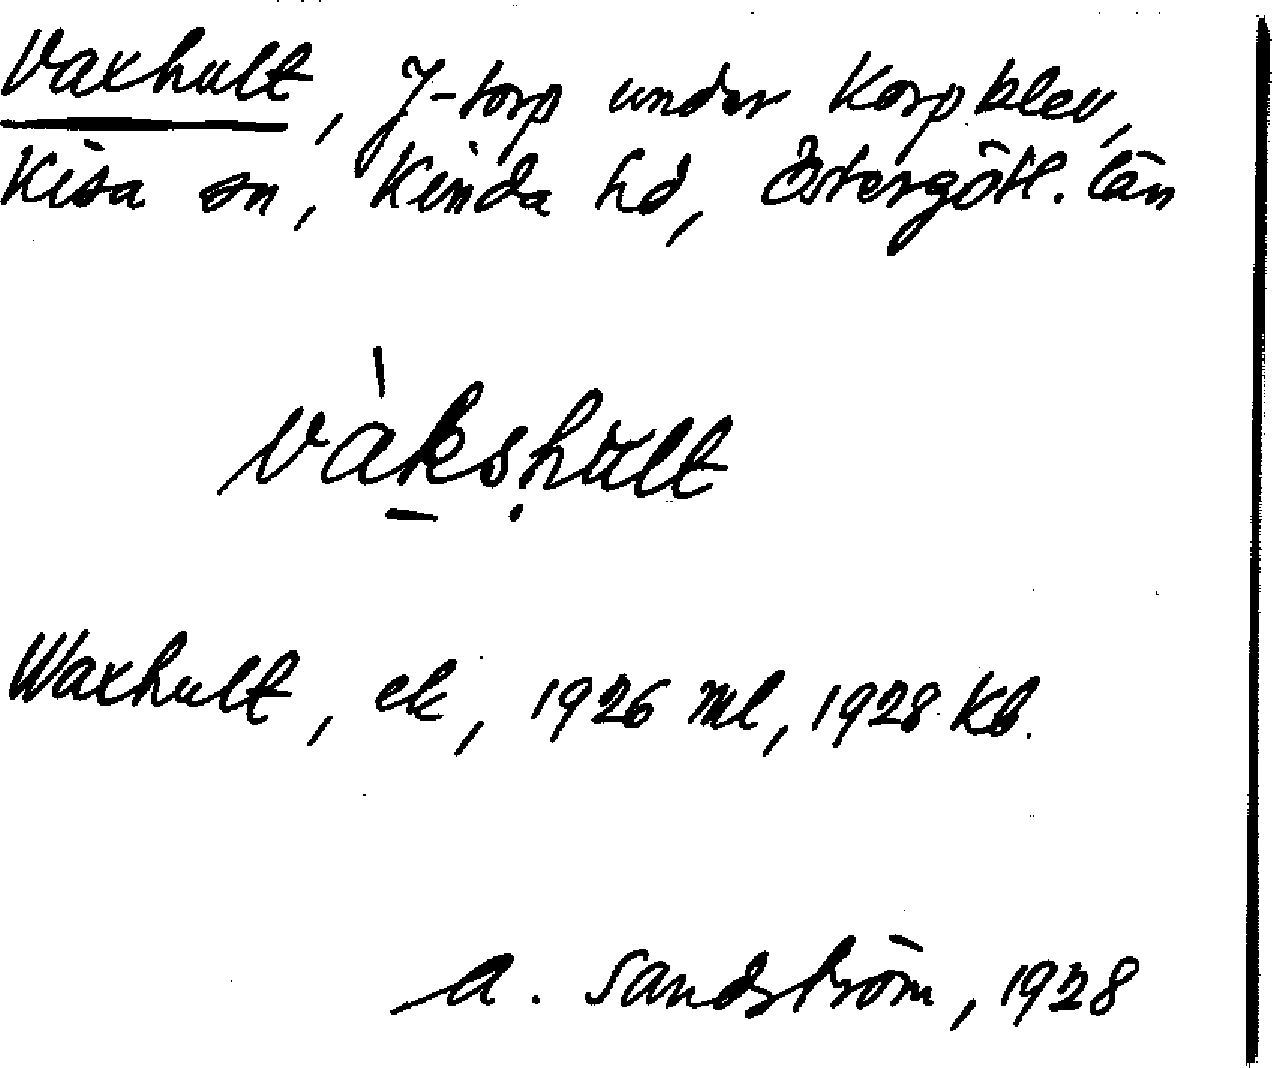 Vaxhult, J-torp under Korpklev,
Kisa sn, Kinda hd, Östergötl. län
vàkshult
Waxhult, ek, 1926 Ml, 1928 Kb.
A. Sandström, 1928